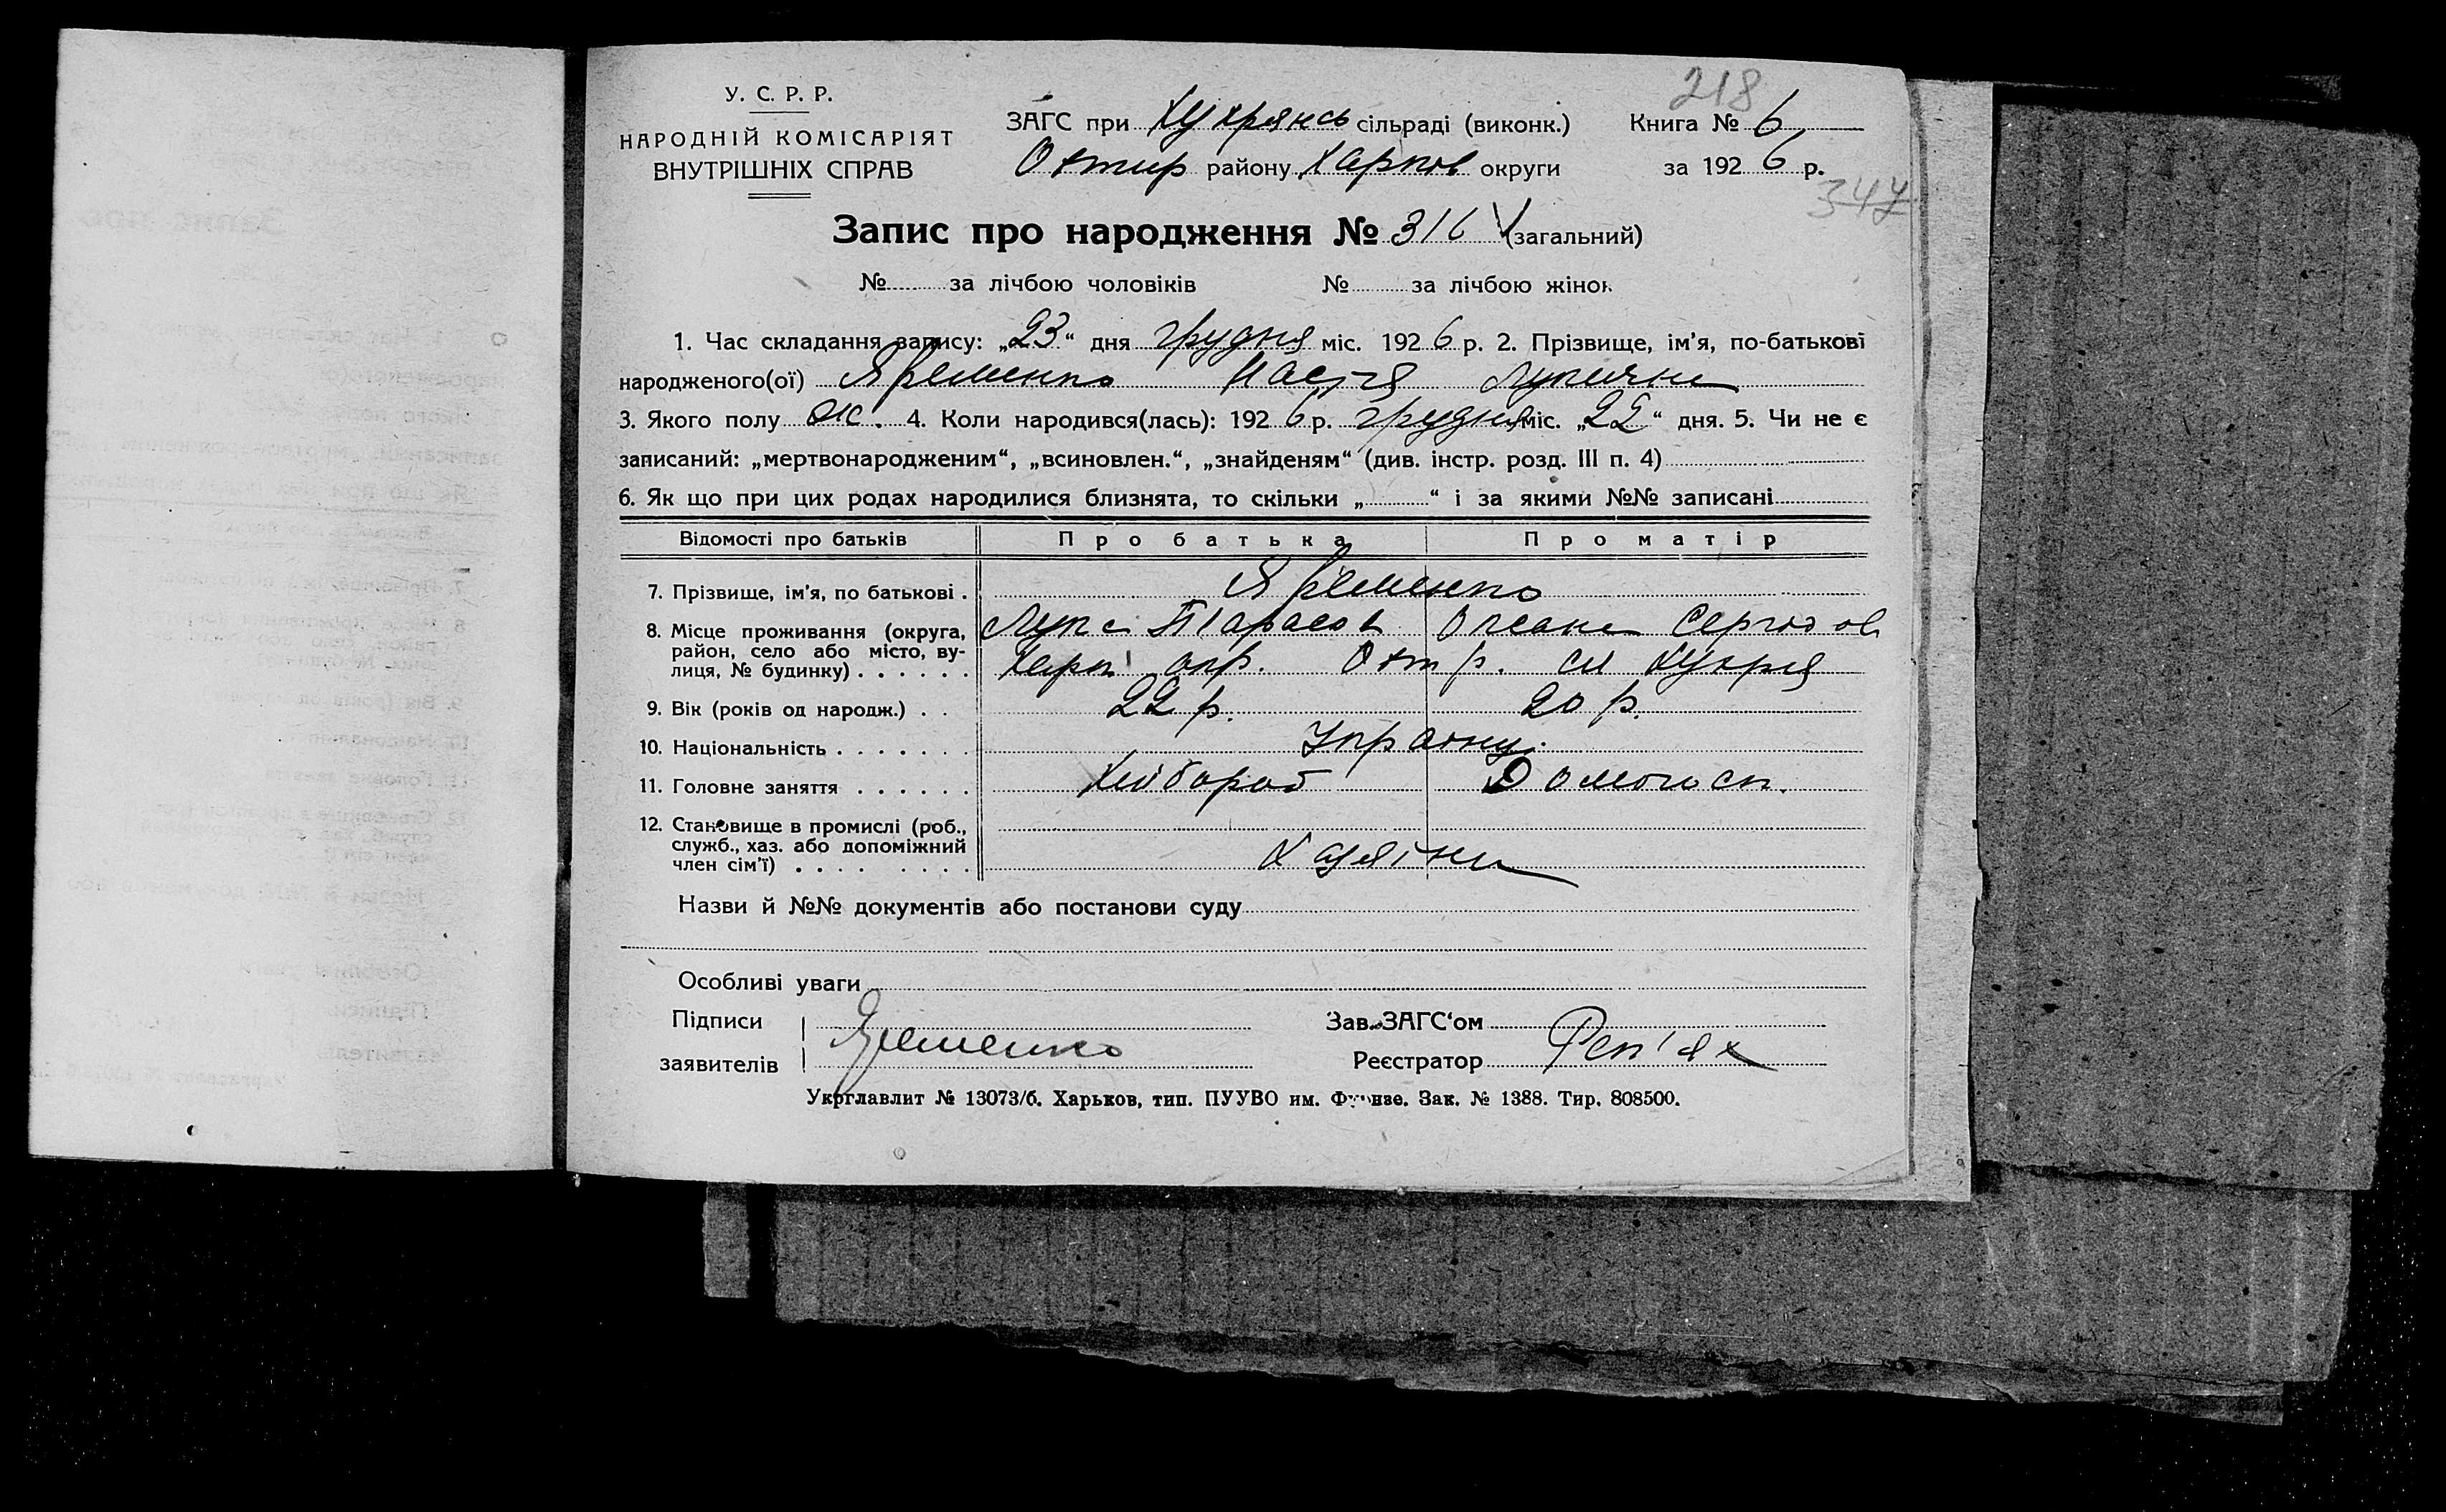 218
У. С. Р. Р.
НАРОДНІЙ КОМІСАРІЯТ
ВНУТРІШНІХ СПРАВ
ЗАГС при Хухрянсь сільраді (виконк.) Книга № 6
Охтир району Харков округи за 1926 р.
347
Запис про народження № 316 (загальний)
№ за лічбою чоловіків № за лічбою жінок
1. Час складання запису: „23“ дня грудня міс. 1926 р. 2. Прізвище, ім'я, по-батькові
народженого(ої) Яременко Настя Лукична
3. Якого полу ж. 4. Коли народився(лась): 1926 р. грудня міс. „22“ дня. 5. Чи не є
записаний: „мертвонародженим“, „всиновлен.“, „знайденям“ (див. інстр. розд. III п. 4)
6. Як що при цих родах народилися близнята, то скільки „ “ і за якими №№ записані
Відомості про батьків Про батька Про матір
7. Прізвище, ім'я, по батькові . Яременко
Лука Тарасов Оксана Сергіов
8. Місце проживання (округа,
район, село або місто, ву-
лиця, № будинку) . . . . . . Харк окр. Охт р. сл Хухря
9. Вік (років од народж.) . . 22 р. 20 р.
10. Національність . . . . . . . Украінці
11. Головне заняття . . . . . . Хлібороб Домогосп.
12. Становище в промислі (роб.,
служб., хаз. або допоміжний
член сім'ї) . . . . . . . . Хазяіни
Назви й №№ документів або постанови суду
Особливі уваги
Підписи Зав. ЗАГС'ом
заявителів Яременко Реєстратор Реп'ях
Укрглавлит № 13073/б. Харьков, тип. ПУУВО им. Фрунзе. Зак. № 1388. Тир. 808500.